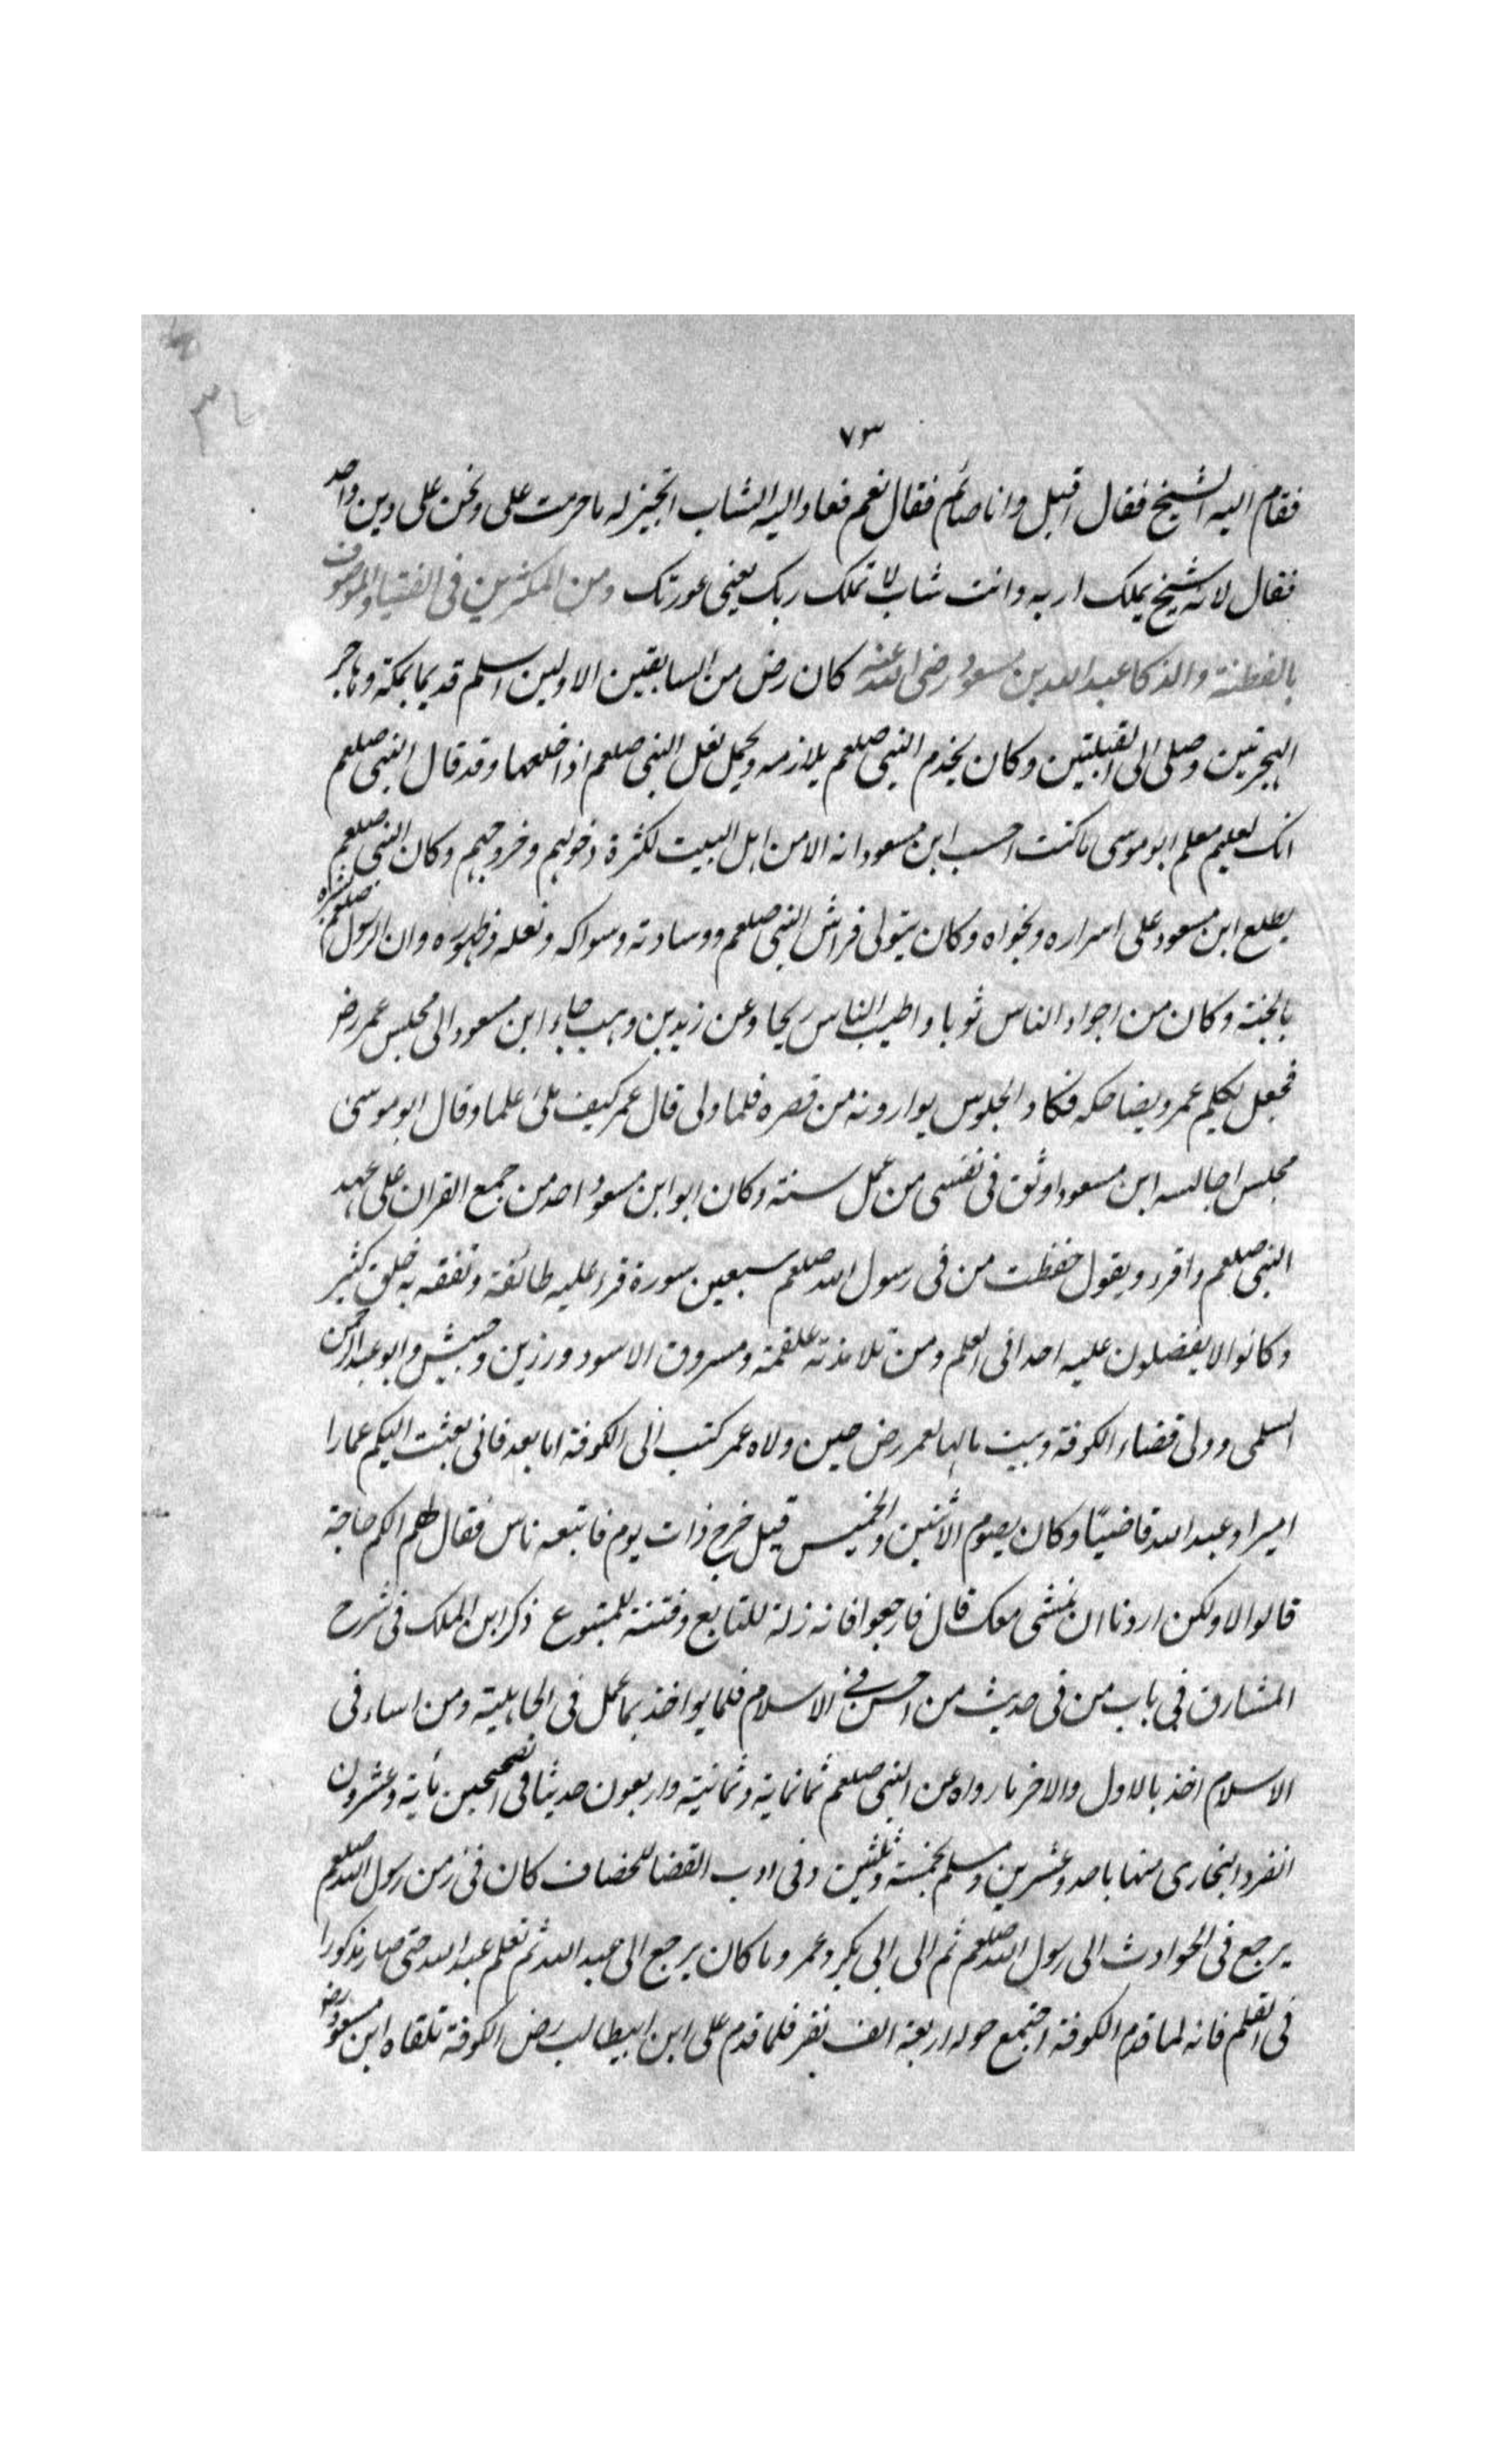 ٧٣
فقام اليه الشيخ فقال اقبل وانا صائم فقال نعم فعاد اليه الشاب اتجيز له ما حرمت على ونحن على دين واحد
فقال لانه شيخ يملك اربه وانت شاب لا تملك ربك يعنى عورتك ومن المكثرين فى الفتيا والموصوف
بالفطنة والذكا عبد الله بن مسعود رضى الله عنه كان رض من السابقين الاولين اسلم قديما بمكة وهاجر
الهجرتين وصلى الى القبلتين وكان يخدم النبى صلعم يلازمه ويحمل نعل النبى صلعم اذا خلعها وقد قال النبى صلعم
انك لعليم معلم ابو موسى ما كنت احسب ابن مسعود انه الا من اهل البيت لكثرة دخولهم وخروجهم وكان النبى صلعم
يطلع ابن مسعود على اسراره ونجواه وكان يتولى فراش النبى صلعم ووسادته وسواكه ونعله وطهوره وان الرسول صلعم بشره
بالجنة وكان من اجواد الناس ثوبا واطيب الناس ريحا وعن زيد بن وهب جاء ابن مسعود الى مجلس عمر رض
فجعل يكلم عمر ويضاحكه فكاد الجلوس يوارونه من قصره فلما ولى قال عمر كيف ملئ علما وقال ابو موسى
مجلس اجالسه ابن مسعود اوثق فى نفسى من عمل سنة وكان ابو ابن مسعود احد من جمع القران على عهد
النبى صلعم واقرء ويقول حفظت من فى رسول الله صلعم سبعين سورة قرء عليه طائفة وتفقه به خلق كثير
وكانوا لا يفضلون عليه احدا فى العلم ومن تلامذته علقمة ومسروق الاسود ورزين وحبيش وابو عبد الرحمن
السلمى وولى قضاء الكوفة وبيت مالها لعمر رض حين ولاه عمر كتب الى الكوفة اما بعد فانى بعثت اليكم عمارا
اميرا وعبد الله قاضيًا وكان يصوم الاثنين والخميس قيل خرج ذات يوم فاتبعه ناس فقال لهم الكم حاجة
قالوا لا ولكن اردنا ان نمشى معك قال فارجعوا فانه زلة للتابع وفتنة للمتبوع ذكر ابن الملك فى شرح
المشارق فى باب من فى حديث من احسن فى الاسلام فلما يواخذ بما عمل فى الجاهلية ومن اساء فى
الاسلام اخذ بالاول والاخر ما رواه عن النبى صلعم ثمانماية وثمانية واربعون حديثا فى الصحيحين مأية وعشرون
انفرد البخارى منها باحد وعشرين ومسلم بخمسة وثلثين وفى ادب القضا للخصاف كان فى زمن رسول الله صلعم
يرجع فى الحوادث الى رسول الله صلعم ثم الى ابى بكر وعمر وما كان يرجع الى عبد الله ثم تعلم عبد الله حتى صار مذكورا
فى العلم فانه لما قدم الكوفة اجتمع حوله اربعة الف نفر فلما قدم على ابن ابيطالب رض الكوفة تلقاه ابن مسعود رض